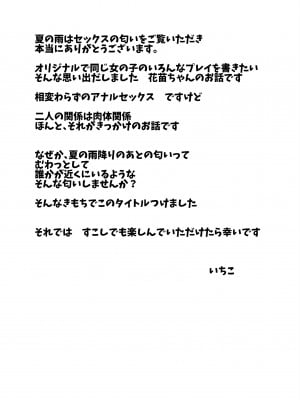 夏の雨はセックスの匂いをご覧いただき
本当にありがとうございます。
オリジナルで同じ女の子のいろんなプレイを書きたい
そんな思い出だしました 花苗ちゃんのお話です
相変わらずのアナルセックス ですけど
二人の関係は肉体関係
ほんと、それがきっかけのお話です
なぜか、夏の雨降りのあとの匂いって
むわっとして
誰かが近くにいるような
そんな匂いしませんか？
そんなきもちでこのタイトルつけました
それでは すこしでも楽しんでいただけたら幸いです
いちこ